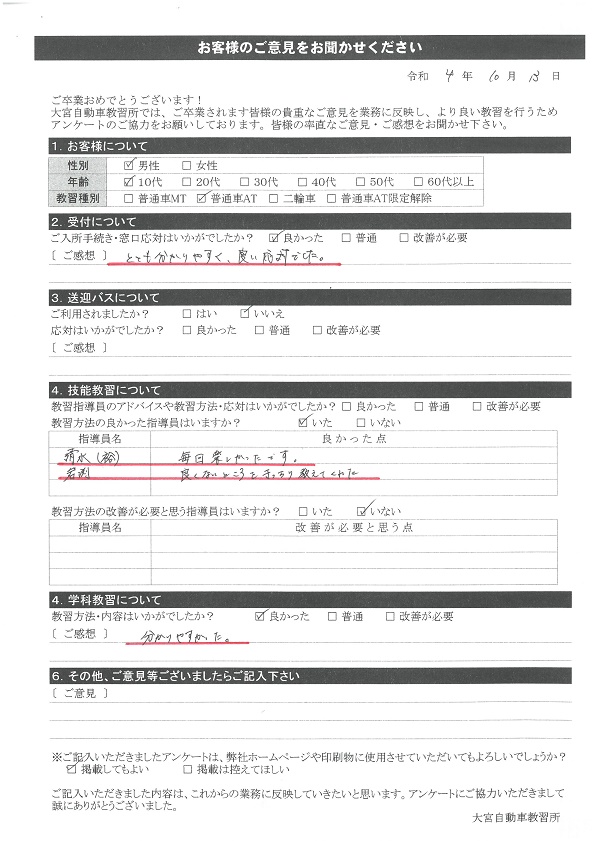 お客様のご意見をお聞かせください
令和 4 年 10 月 13 日
ご卒業おめでとうございます！
大宮自動車教習所では、ご卒業されます皆様の貴重なご意見を業務に反映し、より良い教習を行うため
アンケートのご協力をお願いしております。皆様の率直なご意見・ご感想をお聞かせ下さい。
1. お客様について
性別 ☑ 男性 □ 女性
年齢 ☑ 10代 □ 20代 □ 30代 □ 40代 □ 50代 □ 60代以上
教習種別 □ 普通車MT ☑ 普通車AT □ 二輪車 □ 普通車AT限定解除
2. 受付について
ご入所手続き・窓口応対はいかがでしたか？ ☑ 良かった □ 普通 □ 改善が必要
〔 ご感想 〕 とても分かりやすく、良い応対でした。
3. 送迎バスについて
ご利用されましたか？ □ はい ☑ いいえ
応対はいかがでしたか？ □ 良かった □ 普通 □ 改善が必要
〔 ご感想 〕
4. 技能教習について
教習指導員のアドバイスや教習方法・応対はいかがでしたか？ □ 良かった □ 普通 □ 改善が必要
教習方法の良かった指導員はいますか？ ☑ いた □ いない
指導員名 良かった点
清水（裕） 毎回楽しかったです。
岩渕 良くないところをきっちり教えてくれた
教習方法の改善が必要と思う指導員はいますか？ □ いた ☑ いない
指導員名 改善が必要と思う点
4. 学科教習について
教習方法・内容はいかがでしたか？ ☑ 良かった □ 普通 □ 改善が必要
〔 ご感想 〕 分かりやすかった。
6. その他、ご意見等ございましたらご記入下さい
〔 ご意見 〕
※ご記入いただきましたアンケートは、弊社ホームページや印刷物に使用させていただいてもよろしいでしょうか？
☑ 掲載してもよい □ 掲載は控えてほしい
ご記入いただきました内容は、これからの業務に反映していきたいと思います。アンケートにご協力いただきまして
誠にありがとうございました。
大宮自動車教習所